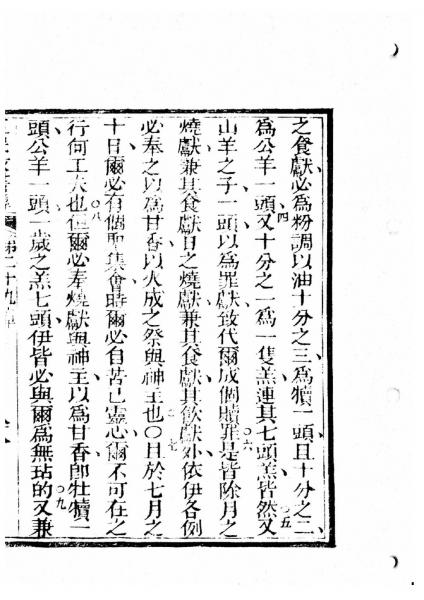 之食獻必為粉調以油十分之三為犢一頭且十分之二
為公羊一頭四又十分之一為一隻羔連其七頭羔皆然五又
山羊之子一頭以為罪獻致代爾成個贖罪六是皆除月之
燒獻兼其食獻日之燒獻兼其食獻其飲獻外依伊各例
必奉之以為甘香以火成之祭與神主也〇七日於七月之
十日爾必有個聖集會時爾必自苦己靈心爾不可在之
行何工夫也八但爾必奉燒獻與神主以為甘香即牡犢一
頭公羊一頭一歲之羔七頭伊皆必與爾為無玷的九又兼
第二十九章